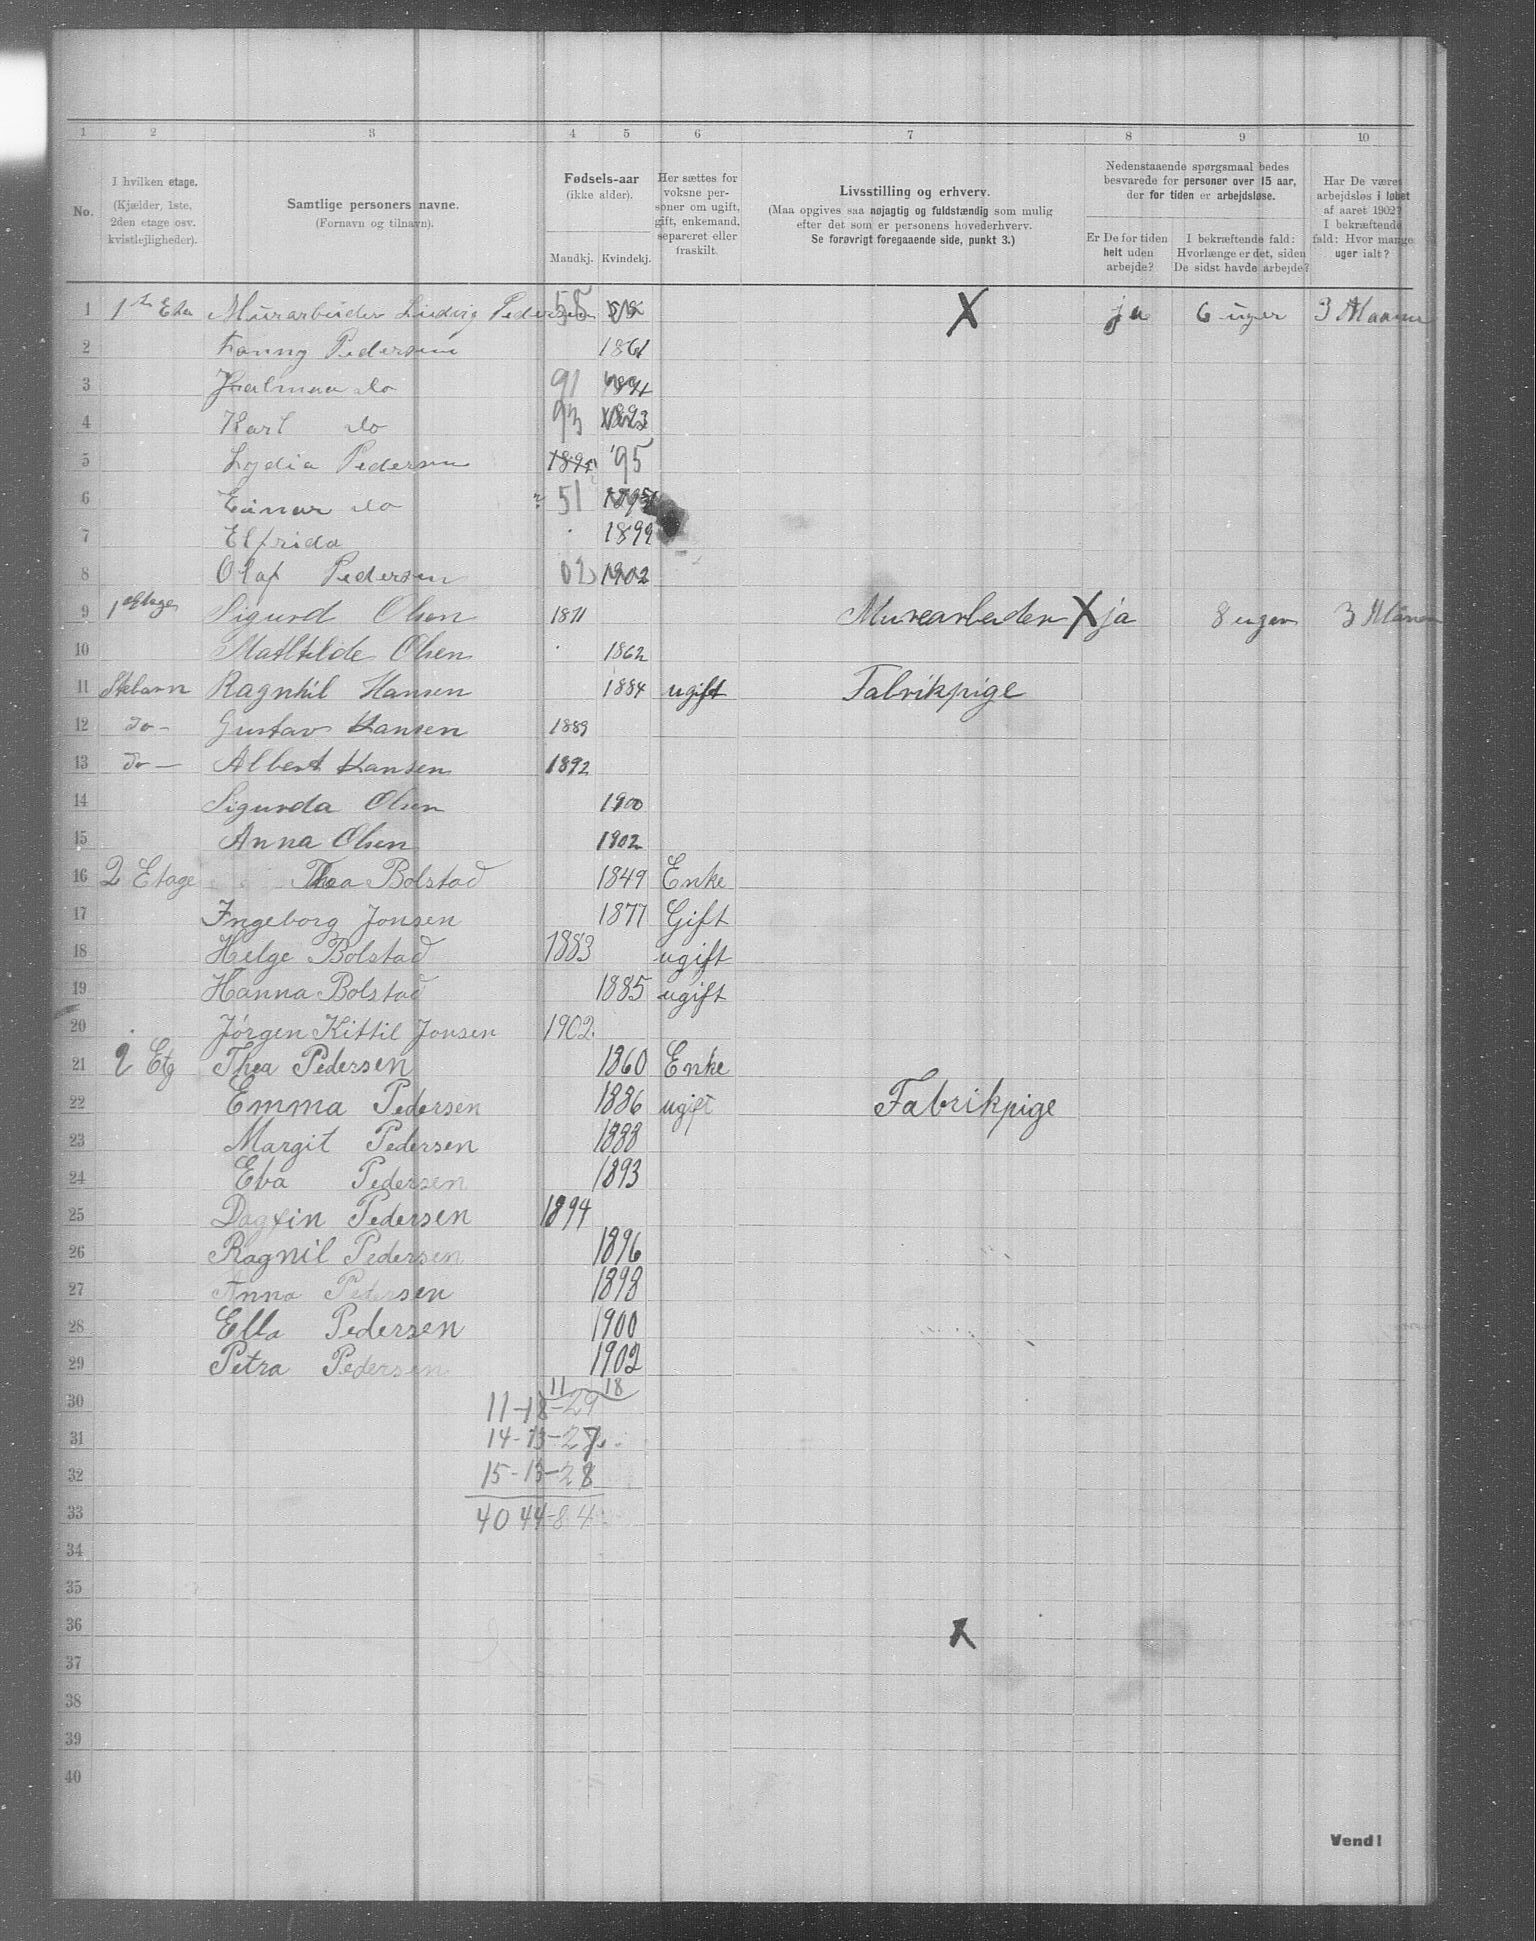 1 2 3 4 5 6 7 8 9 10
No.
I hvilken etage.
(Kjælder, 1ste,
2den etage osv.
kvistlejligheder).
Samtlige personers navne.
(Fornavn og tilnavn).
Fødsels-aar
(ikke alder).
Mandkj. Kvindekj.
Her sættes for
voksne per-
soner om ugift,
gift, enkemand,
separeret eller
fraskilt.
Livsstilling og erhverv.
(Maa opgives saa nøjagtig og fuldstændig som mulig
efter det som er personens hovederhverv.
Se forøvrigt foregaaende side, punkt 3.)
Nedenstaaende spørgsmaal bedes
besvarede for personer over 15 aar,
der for tiden er arbejdsløse.
Er De for tiden
helt uden
arbejde?
I bekræftende fald:
Hvorlænge er det, siden
De sidst havde arbejde?
Har De været
arbejdsløs i løbet
af aaret 1902?
I bekræftende
fald: Hvor mange
uger ialt?
1 Murarbeider Ludvig Pedersen 55 X ja 6 uger 3
2 Fanny Pedersen 1861
3 Hjalmar do 91 1891
4 Karl do 93 1893
5 Lydia Pedersen 1895 '95
6 Einar do 51
7 Elfrida 1899
8 Olaf Pedersen 02 1902
9 1 Etage Sigurd Olsen 1871 Murearbeider X ja 8 uger 3
10 Mathilde Olsen 1862
11 Stebarn Ragnhil Hansen 1884 ugift Fabrikpige
12 do - Gustav Hansen 1889
13 do - Albert Hansen 1892
14 Sigurda Olsen 1900
15 Anna Olsen 1902
16 2 Etage Thea Bolstad 1849 Enke
17 Ingeborg Jonsen 1877 Gift
18 Helge Bolstad 1883 ugift
19 Hanna Bolstad 1885 ugift
20 Jórgen Kittil Jonsen 1902
21 2 Etg Thea Pedersen 1860 Enke
22 Emma Pedersen 1886 ugift Fabrikpige
23 Margit Pedersen 1888
24 Eva Pedersen 1893
25 Dagfin Pedersen 1894
26 Ragnil Pedersen 1896
27 Anna Pedersen 1898
28 Ella Pedersen 1900
29 Petra Pedersen 1902
11 18
30 11-18-29
31 14-13-27
32 15-13-28
33 40 44-84
34
35
36 X
37
38
39
40
Vend!